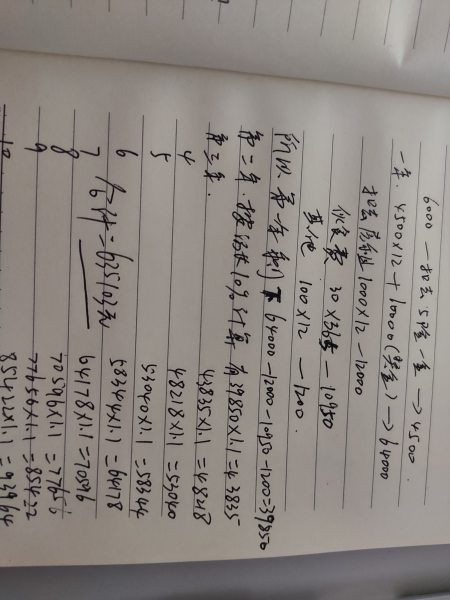 6000 — 扣去 5险一金 → 4500.
一年. 4500×12 + 10000 (奖金) → 64000
扣去 房租 1000×12 — 12000
伙食费 30×365 — 10950
其他 100×12 — 1200.
所以第一年剩下 64000-12000-10950-1200=39850
第二年. 按涨10%计算 有39850×1.1=43835
第三年. 43835×1.1 = 48218
4 48218×1.1 = 53040
5 53040×1.1 = 58344
6 58344×1.1 = 64178
7 64178×1.1 = 70596
8 70596×1.1 = 77656
9 77656×1.1 = 85422
10 85422×1.1 = 93964
= 625103元